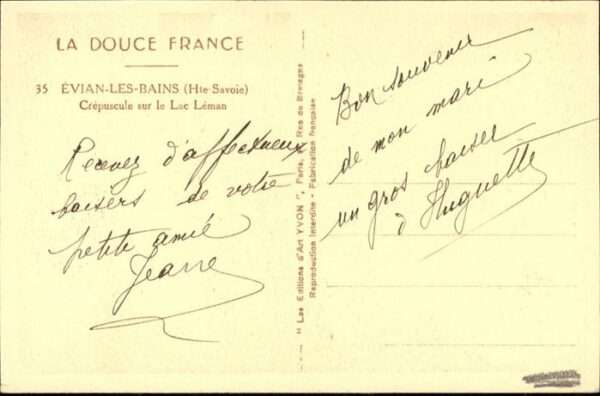 LA DOUCE FRANCE
35 ÉVIAN-LES-BAINS (Hte-Savoie)
Crépuscule sur le Lac Léman
Recevez d'affectueux
baisers de votre
petite amie
Jeanne
"Les Editions d'Art YVON", Paris, Rue de Bretagne
Reproduction Interdite - Fabrication française
Bon souvenir
de mon mari
un gros baiser
d'Huguette